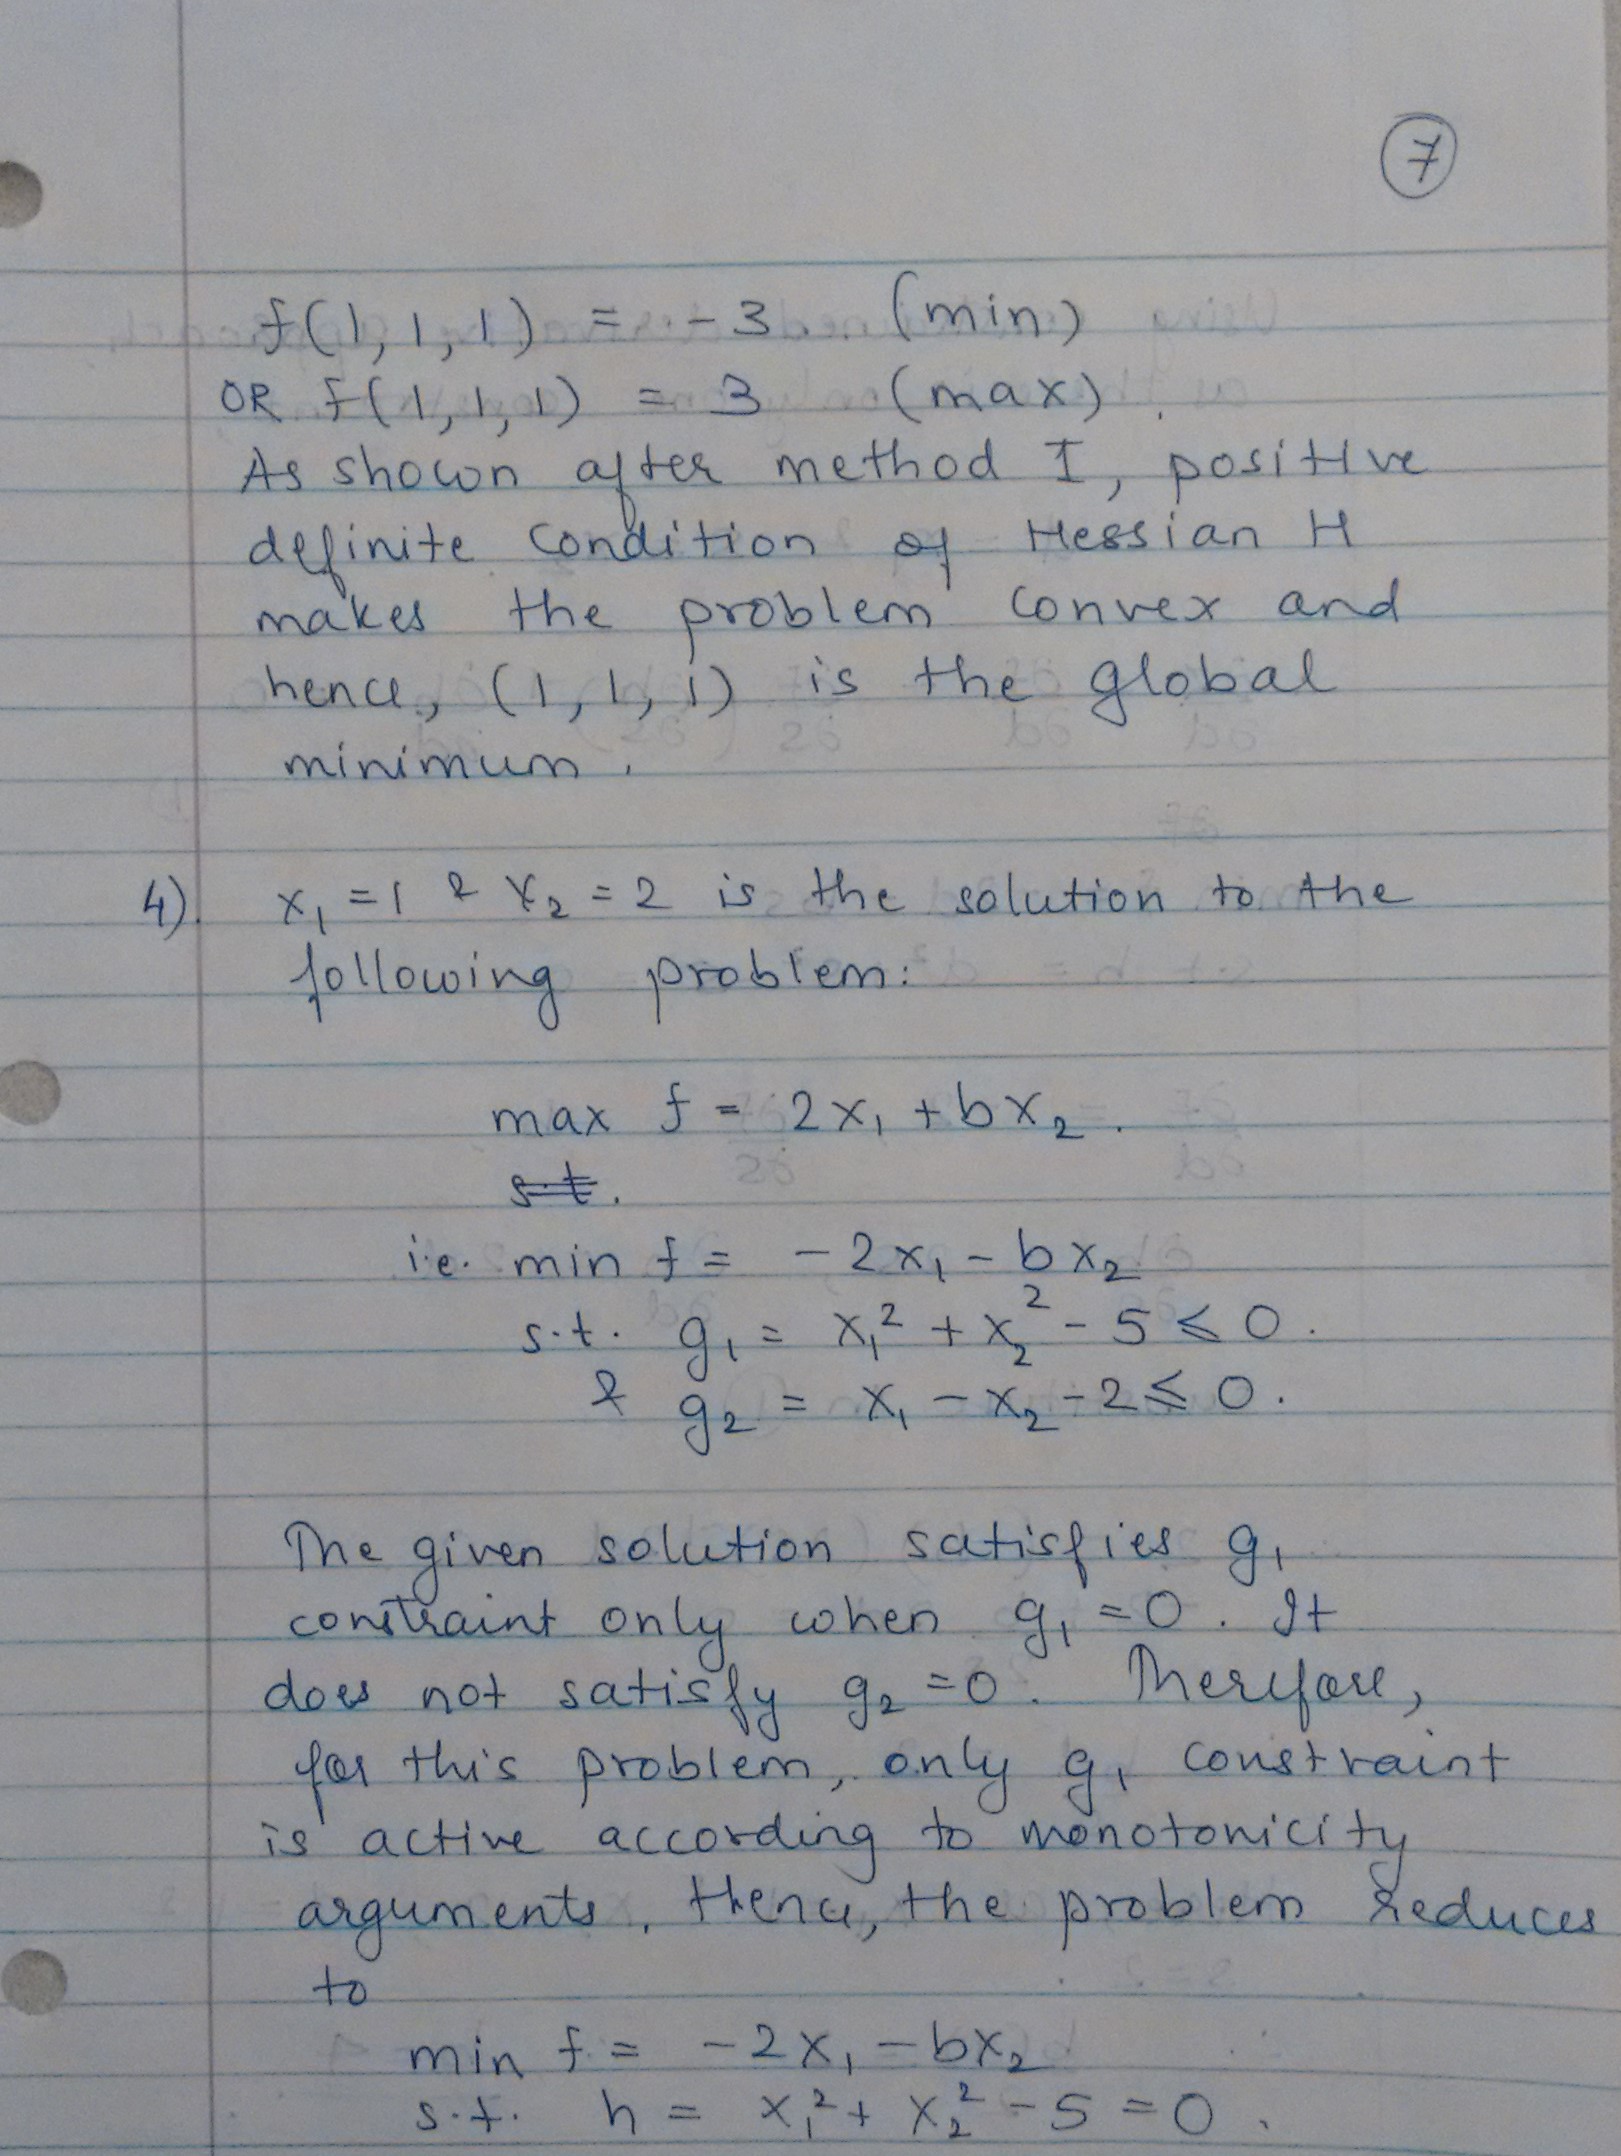 7
f(1,1,1) = -3. (min)
OR f(1,1,1) = 3 (max).
As shown after method I, positive
definite condition of Hessian H
makes the problem convex and
hence, (1,1,1) is the global
minimum.
4). x₁ = 1 & x₂ = 2 is the solution to the
following problem:
max f = 2x₁ + bx₂.
s.t.
i.e. min f = -2x₁ - bx₂
s.t. g₁ = x₁² + x₂² - 5 ≤ 0.
& g₂ = x₁ - x₂ - 2 ≤ 0.
The given solution satisfies g₁
constraint only when g₁ = 0. It
does not satisfy g₂ = 0. Therefore,
for this problem, only g₁ constraint
is active according to monotonicity
arguments. Hence, the problem reduces
to
min f = -2x₁ - bx₂
s.t. h = x₁² + x₂² - 5 = 0.